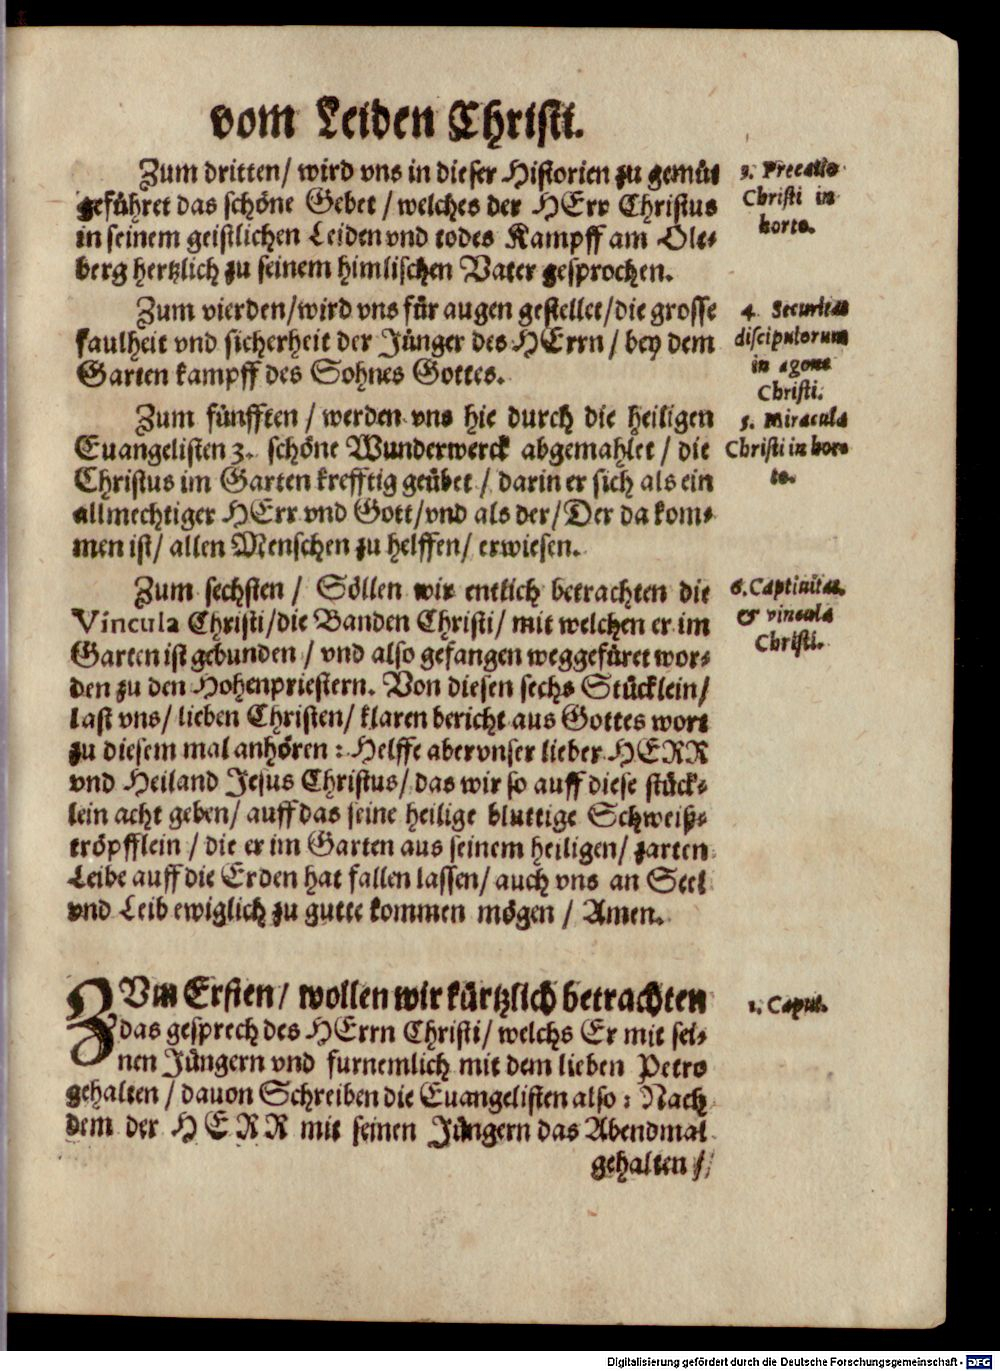 vom Leiden Christi.
Zum dritten/ wird vns in dieser Historien zu gemüt
geführet das schöne Gebet / welches der HErr Christus
in seinem geistlichen Leiden vnd todes Kampff am Ole-
berg hertzlich zu seinem himlischen Vater gesprochen.
3. Precatio
Christi in
horto.
Zum vierden/wird vns für augen gestellet/die grosse
faulheit vnd sicherheit der Jünger des HErrn / bey dem
Garten kampff des Sohnes Gottes.
4. Securitas
discipulorum
in agone
Christi.
Zum fünfften / werden vns hie durch die heiligen
Euangelisten 3. schöne Wunderwerck abgemahlet / die
Christus im Garten krefftig geübet / darin er sich als ein
allmechtiger HErr vnd Gott/vnd als der/Der da kom-
men ist/ allen Menschen zu helffen/ erwiesen.
5. Miracula
Christi in hor-
to.
Zum sechsten / Söllen wir entlich betrachten die
Vincula Christi/die Banden Christi/ mit welchen er im
Garten ist gebunden / vnd also gefangen weggefüret wor-
den zu den Hohenpriestern. Von diesen sechs Stücklein/
last vns/ lieben Christen/ klaren bericht aus Gottes wort
zu diesem mal anhören : Helffe aber vnser lieber HERR
vnd Heiland Jesus Christus/ das wir so auff diese stück-
lein acht geben/ auff das seine heilige bluttige Schweiß-
tröpfflein / die er im Garten aus seinem heiligen/ zarten
Leibe auff die Erden hat fallen lassen/ auch vns an Seel
vnd Leib ewiglich zu gutte kommen mögen / Amen.
6. Captiuitas
& vincula
Christi.
ZVm Ersten/ wollen wir kürtzlich betrachten
das gesprech des HErrn Christi/ welchs Er mit sei-
nen Jüngern vnd furnemlich mit dem lieben Petro
gehalten / dauon Schreiben die Euangelisten also : Nach
dem der HERR mit seinen Jüngern das Abendmal
gehalten /
1. Caput.
Digitalisierung gefördert durch die Deutsche Forschungsgemeinschaft - DFG